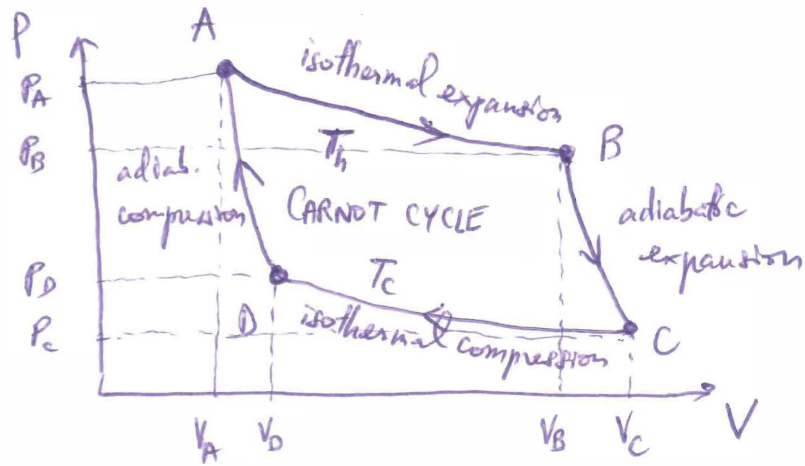 P
A
isothermal expansion
P_A
P_B
T_h
B
adiab.
compression
CARNOT CYCLE
adiabatic
expansion
P_D
T_c
P_c
D
isothermal compression
C
V_A
V_D
V_B
V_C
V